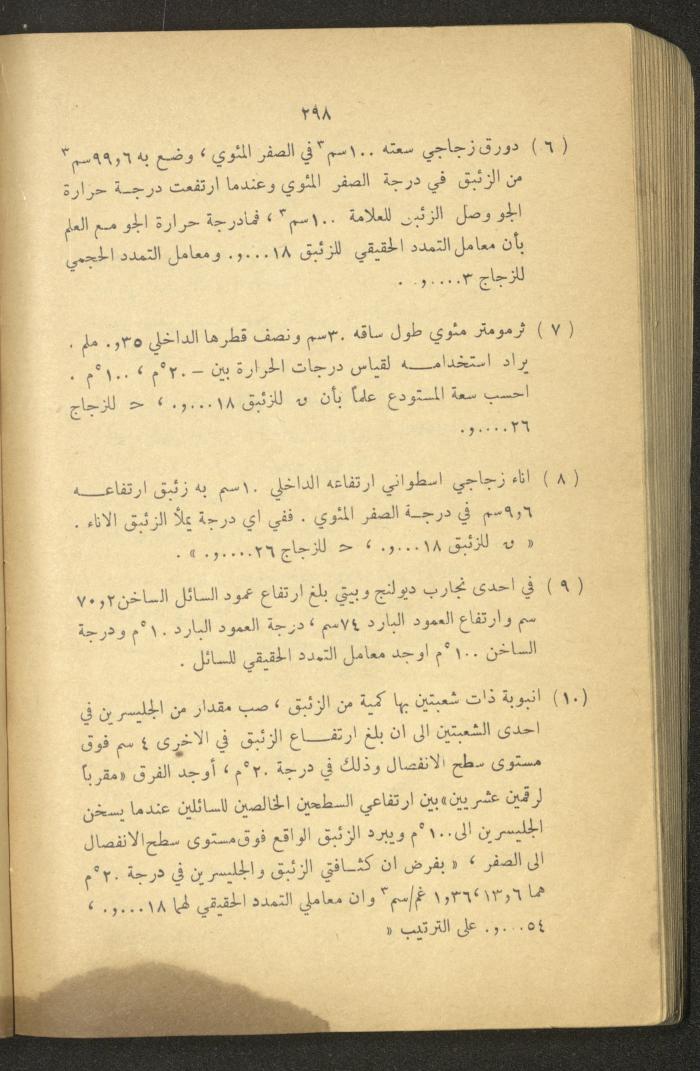 ٢٩٨
( ٦ ) دورق زجاجي سعته ١٠٠سم٣ في الصفر المئوي ، وضع به ٩٩٫٦سم٣
من الزئبق في درجة الصفر المئوي وعندما ارتفعت درجة حرارة
الجو وصل الزئبق للعلامة ١٠٠سم٣ ، فمادرجة حرارة الجو مع العلم
بأن معامل التمدد الحقيقي للزئبق ٠٫٠٠٠١٨ ومعامل التمدد الحجمي
للزجاج ٠٫٠٠٠٠٣ .
( ٧ ) ثرمومتر مئوي طول ساقه ٣٠سم ونصف قطرها الداخلي ٠٫٣٥ ملم .
يراد استخدامه لقياس درجات الحرارة بين – ٢٠°م ، ١٠٠°م .
احسب سعة المستودع علماً بأن ق للزئبق ٠٫٠٠٠١٨ ، ح للزجاج
٠٫٠٠٠٠٢٦
( ٨ ) اناء زجاجي اسطواني ارتفاعه الداخلي ١٠سم به زئبق ارتفاعه
٩٫٦سم في درجة الصفر المئوي . ففي اي درجة يملأ الزئبق الاناء .
« ق للزئبق ٠٫٠٠٠١٨ ، ح للزجاج ٠٫٠٠٠٠٢٦ » .
( ٩ ) في احدى تجارب ديولنج وبيتي بلغ ارتفاع عمود السائل الساخن ٧٠٫٢
سم وارتفاع العمود البارد ٧٤سم ، درجة العمود البارد ١٠°م ودرجة
الساخن ١٠٠°م اوجد معامل التمدد الحقيقي للسائل .
(١٠) انبوبة ذات شعبتين بها كمية من الزئبق ، صب مقدار من الجليسرين في
احدى الشعبتين الى ان بلغ ارتفاع الزئبق في الاخرى ٤ سم فوق
مستوى سطح الانفصال وذلك في درجة ٢٠°م ، أوجد الفرق «مقرباً
لرقمين عشريين» بين ارتفاعي السطحين الخالصين للسائلين عندما يسخن
الجليسرين الى ١٠٠°م ويبرد الزئبق الواقع فوق مستوى سطح الانفصال
الى الصفر ، « بفرض ان كثافتي الزئبق والجليسرين في درجة ٢٠°م
هما ١٣٫٦ ، ١٫٣٦ غم/سم٣ وان معاملي التمدد الحقيقي لهما ٠٫٠٠٠١٨ ،
٠٫٠٠٠٥٤ على الترتيب »